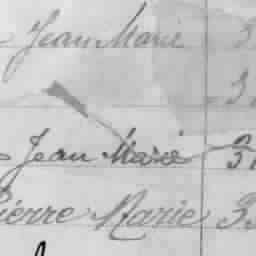 Jean Marie 3
3
Jean Marie 3
Pierre Marie 33